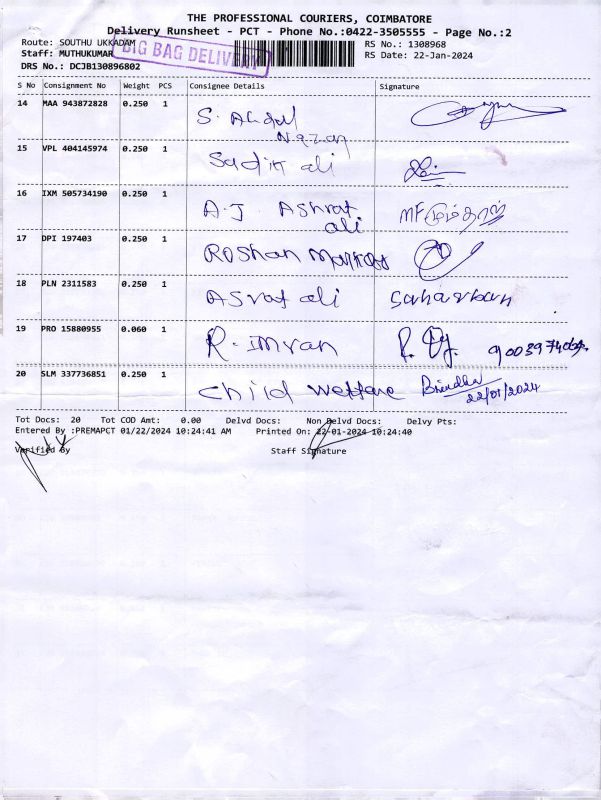 THE PROFESSIONAL COURIERS, COIMBATORE
Delivery Runsheet - PCT - Phone No.:0422-3505555 - Page No.:2
Route: SOUTHU UKKADAM
RS No.: 1308968
Staff: MUTHUKUMAR
BIG BAG DELIVERY
RS Date: 22-Jan-2024
DRS No.: DCJB130896802
S No Consignment No Weight PCS Consignee Details Signature
14 MAA 943872828 0.250 1 S. Abdul
15 VPL 404145974 0.250 1 Sadik ali
16 IXM 505734190 0.250 1 A.J. Ashraf
ali
MF மும்தாஜ்
17 DPI 197403 0.250 1 Roshan
18 PLN 2311583 0.250 1 Asraf ali
19 PRO 15880955 0.060 1 R. imran
20 SLM 337736851 0.250 1 child welfare Brindha
22/01/2024
Tot Docs: 20 Tot COD Amt: 0.00 Delvd Docs: Non Delvd Docs: Delvy Pts:
Entered By :PREMAPCT 01/22/2024 10:24:41 AM Printed On: 22-01-2024 10:24:40
Verified By Staff Signature